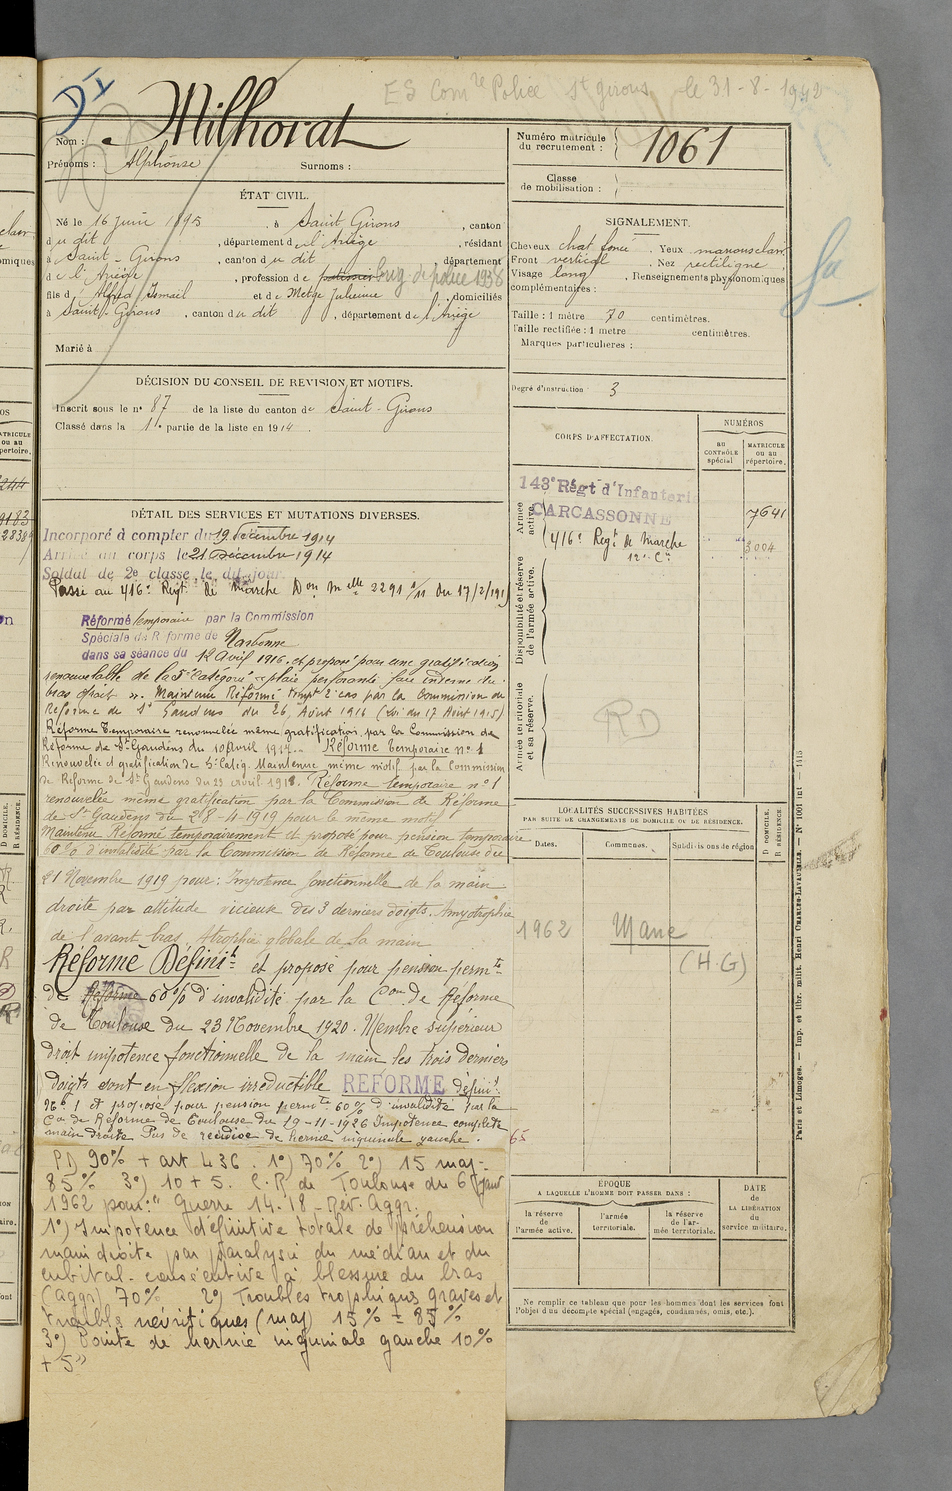 DI
ES Com re Police St Girons le 31-8-1942
Nom : Milhorat
Prénoms : Alphonse Surnoms :
Numéro matricule du recrutement : 1061
Classe de mobilisation :
ÉTAT CIVIL.
Né le 16 juin 1895, à Saint Girons, canton
du dit, département de l'Ariège, résidant
à Saint-Girons, canton du dit, département
de l'Ariège, profession de Brig. de police 1938
fils d'Alfred Ismaïl et de Metge Julienne, domiciliés
à Saint-Girons, canton du dit, département de l'Ariège
Marié à
SIGNALEMENT.
Cheveux chat foncé. Yeux marrons clair
Front vertical. Nez rectiligne.
Visage long. Renseignements physionomiques
complémentaires :
Taille : 1 mètre 70 centimètres.
Taille rectifiée : 1 mètre centimètres.
Marques particulières :
Degré d'instruction 3
DÉCISION DU CONSEIL DE REVISION ET MOTIFS.
Inscrit sous le n° 87 de la liste du canton de Saint-Girons
Classé dans la 1re partie de la liste en 1914.
CORPS D'AFFECTATION.
NUMÉROS
AU CONTRÔLE spécial
MATRICULE ou au répertoire.
Armée active.
143e Régt d'Infanterie
CARCASSONNE
7641
416e Regt de Marche
12e Cie
3004
Disponibilité et réserve de l'armée active.
Armée territoriale et sa réserve.
RD
DÉTAIL DES SERVICES ET MUTATIONS DIVERSES.
Incorporé à compter du 19 Décembre 1914
Arrivé au corps le 21 Décembre 1914
Soldat de 2e classe le dit jour.
Passé au 416e Regt de Marche Don Melle 2291 1/11 du 17/2/191
Réformé temporaire par la Commission
Spéciale de Réforme de Narbonne
dans sa séance du 12 Avril 1916. et proposé pour une gratification
renouvelable de la 5e catégorie "plaie perforante face interne du
bras droit". Maintenu Réformé tempre 2e cas par la Commission de
Réforme de St Gaudens du 26 Août 1916 (Loi du 17 Août 1915)
Réforme Temporaire renouvelée même gratification par la Commission de
Réforme de St Gaudens du 10 Avril 1917. Réforme Temporaire n° 1
Renouvelée et gratification de 5e Catég. Maintenue même motif par la Commission
de Réforme de St Gaudens du 23 avril 1918. Réforme temporaire n° 1
renouvelée même gratification par la Commission de Réforme
de St Gaudens du 28-4-1919 pour le même motif
Maintenu Réformé temporairement et proposé pour pension temporaire
60% d'invalidité par la Commission de Réforme de Toulouse du
21 Novembre 1919 pour : Impotence fonctionnelle de la main
droite par attitude vicieuse des 3 derniers doigts. Amyotrophie
de l'avant bras, Atrophie globale de la main
Réformé Définit. et proposé pour pension permte
de Réforme 60% d'invalidité par la Con de Réforme
de Toulouse du 23 Novembre 1920. Membre supérieur
droit impotence fonctionnelle de la main les trois derniers
doigts sont en flexion irréductible RÉFORMÉ définit.
N° 1 et proposé pour pension permte 60% d'invalidité par la
Con de Réforme de Toulouse du 29-11-1926 Impotence complète
main droite Pas de récidive de hernie inguinale gauche. 65
PD 90% + art 436. 1°) 70% 2°) 15 maj =
85% 3°) 10 + 5. C.R de Toulouse du 6 janv
1962 pour : "Guerre 14.18 - Rév. Aggr.
1°) Impotence définitive totale de préhension
main droite par paralysie du médian et du
cubital - consécutive à blessure du bras
(aggr) 70% 2°) Troubles trophiques graves et
troubles névritiques (maj) 15% = 85%
3°) Pointe de hernie inguinale gauche 10%
+ 5"
LOCALITÉS SUCCESSIVES HABITÉES
PAR SUITE DE CHANGEMENTS DE DOMICILE OU DE RÉSIDENCE.
Dates. Communes. Subdivisions de région D DOMICILE. R RÉSIDENCE.
1962 Mane
(H.G)
ÉPOQUE
A LAQUELLE L'HOMME DOIT PASSER DANS :
la réserve de l'armée active.
l'armée territoriale.
la réserve de l'armée territoriale.
DATE DE LA LIBÉRATION du service militaire.
Ne remplir ce tableau que pour les hommes dont les services font
l'objet d'un décompte spécial (engagés, condamnés, omis, etc.).
Paris et Limoges. — Imp. et libr. milit. Henri CHARLES-LAVAUZELLE. — N° 1001 int — 1415